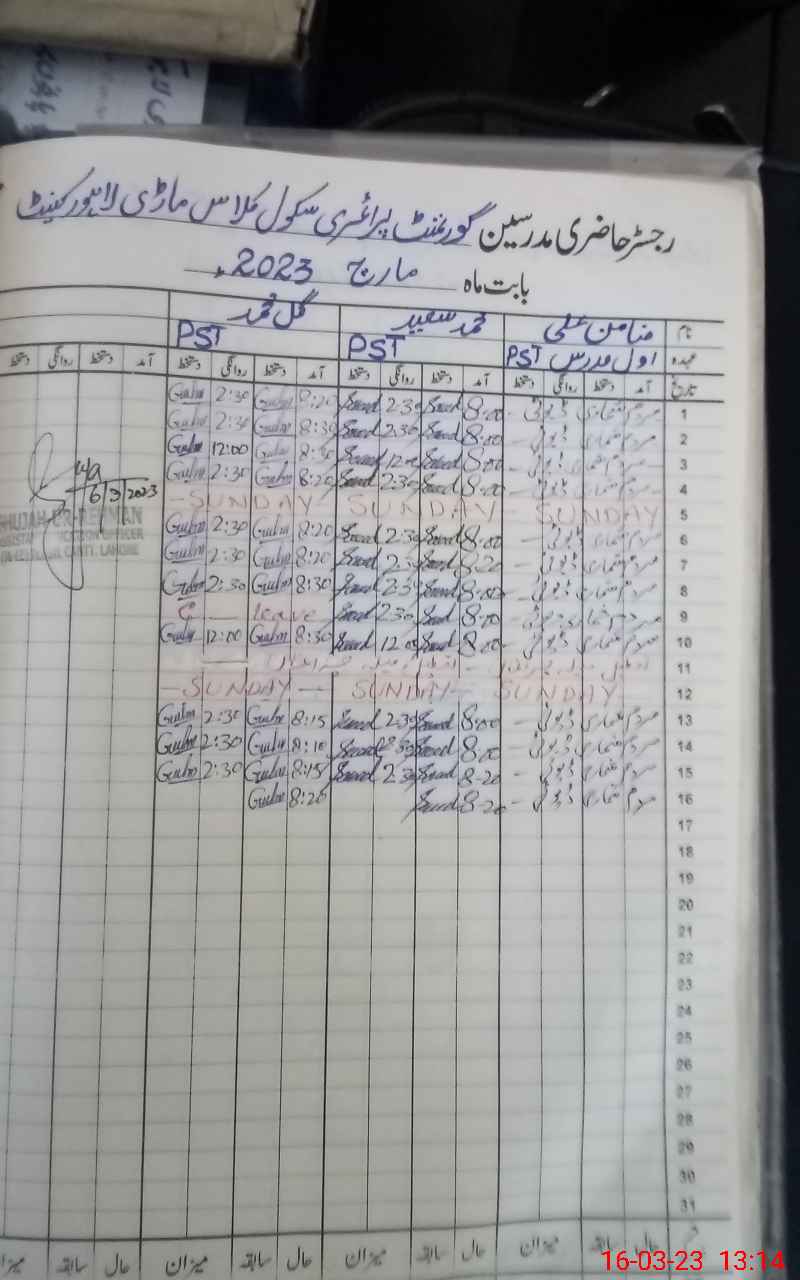 رجسٹر حاضری مدرسین گورنمنٹ پرائمری سکول کلاس ماڑی لاہور کینٹ
بابت ماہ مارچ 2023ء
نام ضامن علی محمد سعید گل محمد
عہدہ اول مدرس PST PST PST
تاریخ آمد دستخط روانگی دستخط آمد دستخط روانگی دستخط آمد دستخط روانگی دستخط آمد دستخط روانگی دستخط
1 مردم شماری ڈیوٹی - 8:00 Saeed 2:30 Saeed 8:20 Gulm 2:30 Gulm
2 مردم شماری ڈیوٹی - 8:00 Saeed 2:30 Saeed 8:30 Gulm 2:30 Gulm
3 مردم شماری ڈیوٹی - 8:00 Saeed 12:00 Saeed 8:30 Gulm 12:00 Gulm
4 مردم شماری ڈیوٹی - 8:00 Saeed 2:30 Saeed 8:20 Gulm 2:30 Gulm
6/3/2023
5 - SUNDAY - SUNDAY - SUNDAY
SHUJAH-UR-REHMAN
6 مردم شماری ڈیوٹی - 8:00 Saeed 2:30 Saeed 8:20 Gulm 2:30 Gulm
7 مردم شماری ڈیوٹی - 8:20 Saeed 2:30 Saeed 8:20 Gulm 2:30 Gulm
8 مردم شماری ڈیوٹی - 8:00 Saeed 2:30 Saeed 8:30 Gulm 2:30 Gulm
9 مردم شماری ڈیوٹی - 8:00 Saeed 2:30 Saeed leave
10 مردم شماری ڈیوٹی - 8:00 Saeed 12:00 Saeed 8:30 Gulm 12:00 Gulm
11
12 - SUNDAY - SUNDAY - SUNDAY
13 مردم شماری ڈیوٹی - 8:00 Saeed 2:30 Saeed 8:15 Gulm 2:30 Gulm
14 مردم شماری ڈیوٹی - 8:00 Saeed 2:30 Saeed 8:10 Gulm 2:30 Gulm
15 مردم شماری ڈیوٹی - 8-20 Saeed 2:30 Saeed 8:15 Gulm 2:30 Gulm
16 مردم شماری ڈیوٹی - 8-20 Saeed 8:20 Gulm
17
18
19
20
21
22
23
24
25
26
27
28
29
30
31
حال سابقہ میزان حال سابقہ میزان حال سابقہ میزان حال سابقہ میزان
16-03-23 13:14